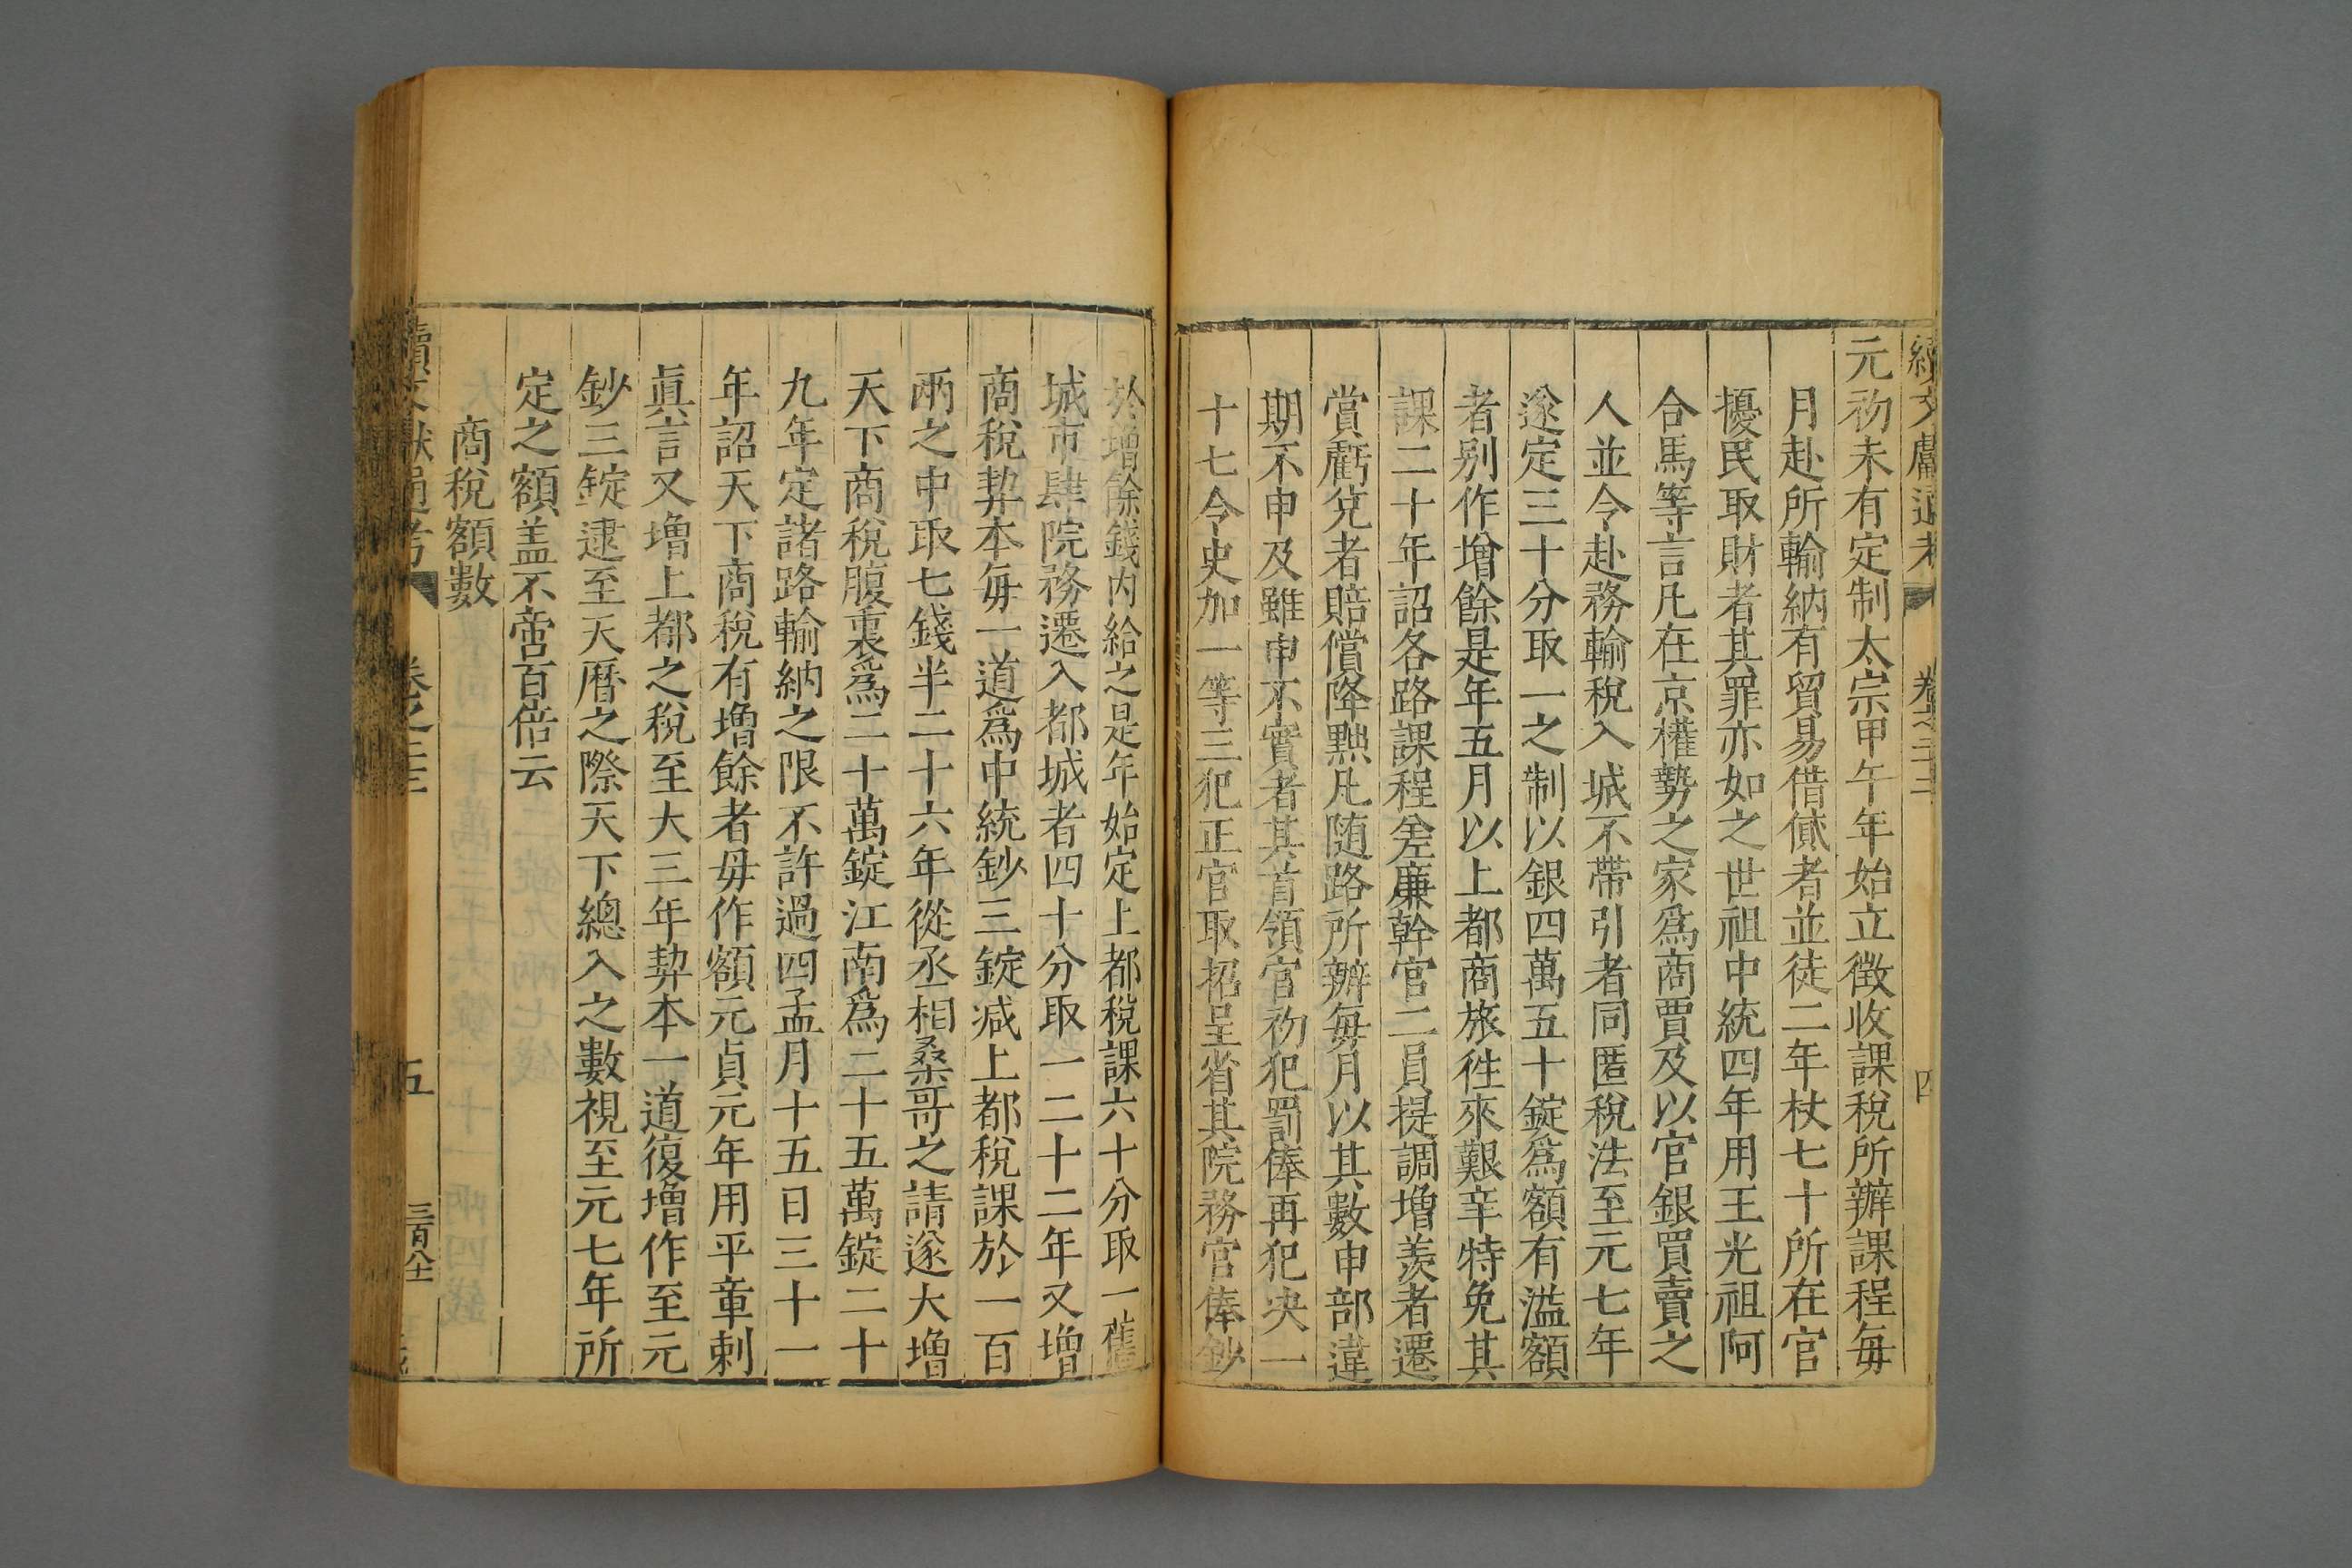 續文獻通考
卷之二十三
四
元初未有定制太宗甲午年始立徵收課稅所辦課程每
月赴所輸納有貿易借貸者並徒二年杖七十所在官
擾民取財者其罪亦如之世祖中統四年用王光祖阿
合馬等言凡在京權勢之家爲商賈及以官銀買賣之
人並令赴務輸稅入城不帶引者同匿稅法至元七年
遂定三十分取一之制以銀四萬五十錠爲額有溢額
者别作增餘是年五月以上都商旅徃來艱辛特免其
課二十年詔各路課程差廉幹官二員提調增羡者遷
賞虧兊者賠償降黜凡随路所辦每月以其數申部違
期不申及雖申不實者其首領官初犯罰俸再犯决一
十七令史加一等三犯正官取招呈省其院務官俸鈔
於增餘錢内給之是年始定上都稅課六十分取一舊
城市肆院務遷入都城者四十分取一二十二年又增
商稅契本每一道爲中統鈔三錢减上都稅課於一百
兩之中取七錢半二十六年從丞相桑哥之請遂大增
天下商稅腹裏爲二十萬錠江南爲二十五萬錠二十
九年定諸路輸納之限不許過四孟月十五日三十一
年詔天下商稅有增餘者毋作額元貞元年用平章剌
眞言又增上都之稅至大三年契本一道復增作至元
鈔三錠逮至天曆之際天下總入之數視至元七年所
定之額盖不啻百倍云
商稅額數
續文獻通考
卷之二十三
五